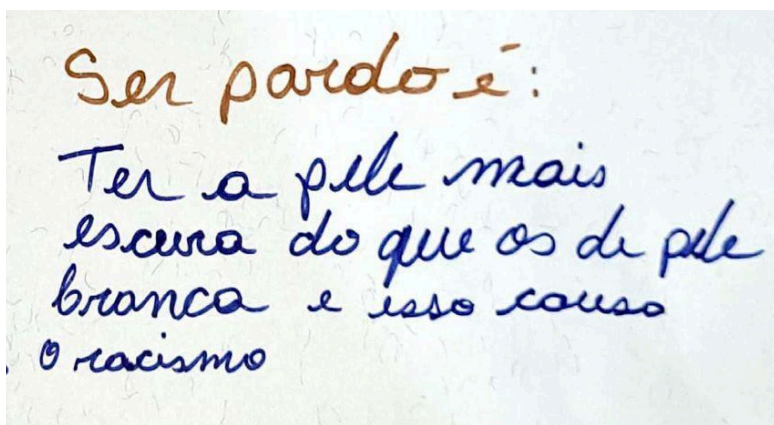 Ser pardo é:
Ter a pele mais
escura do que os de pele
branca e isso causa
o racismo